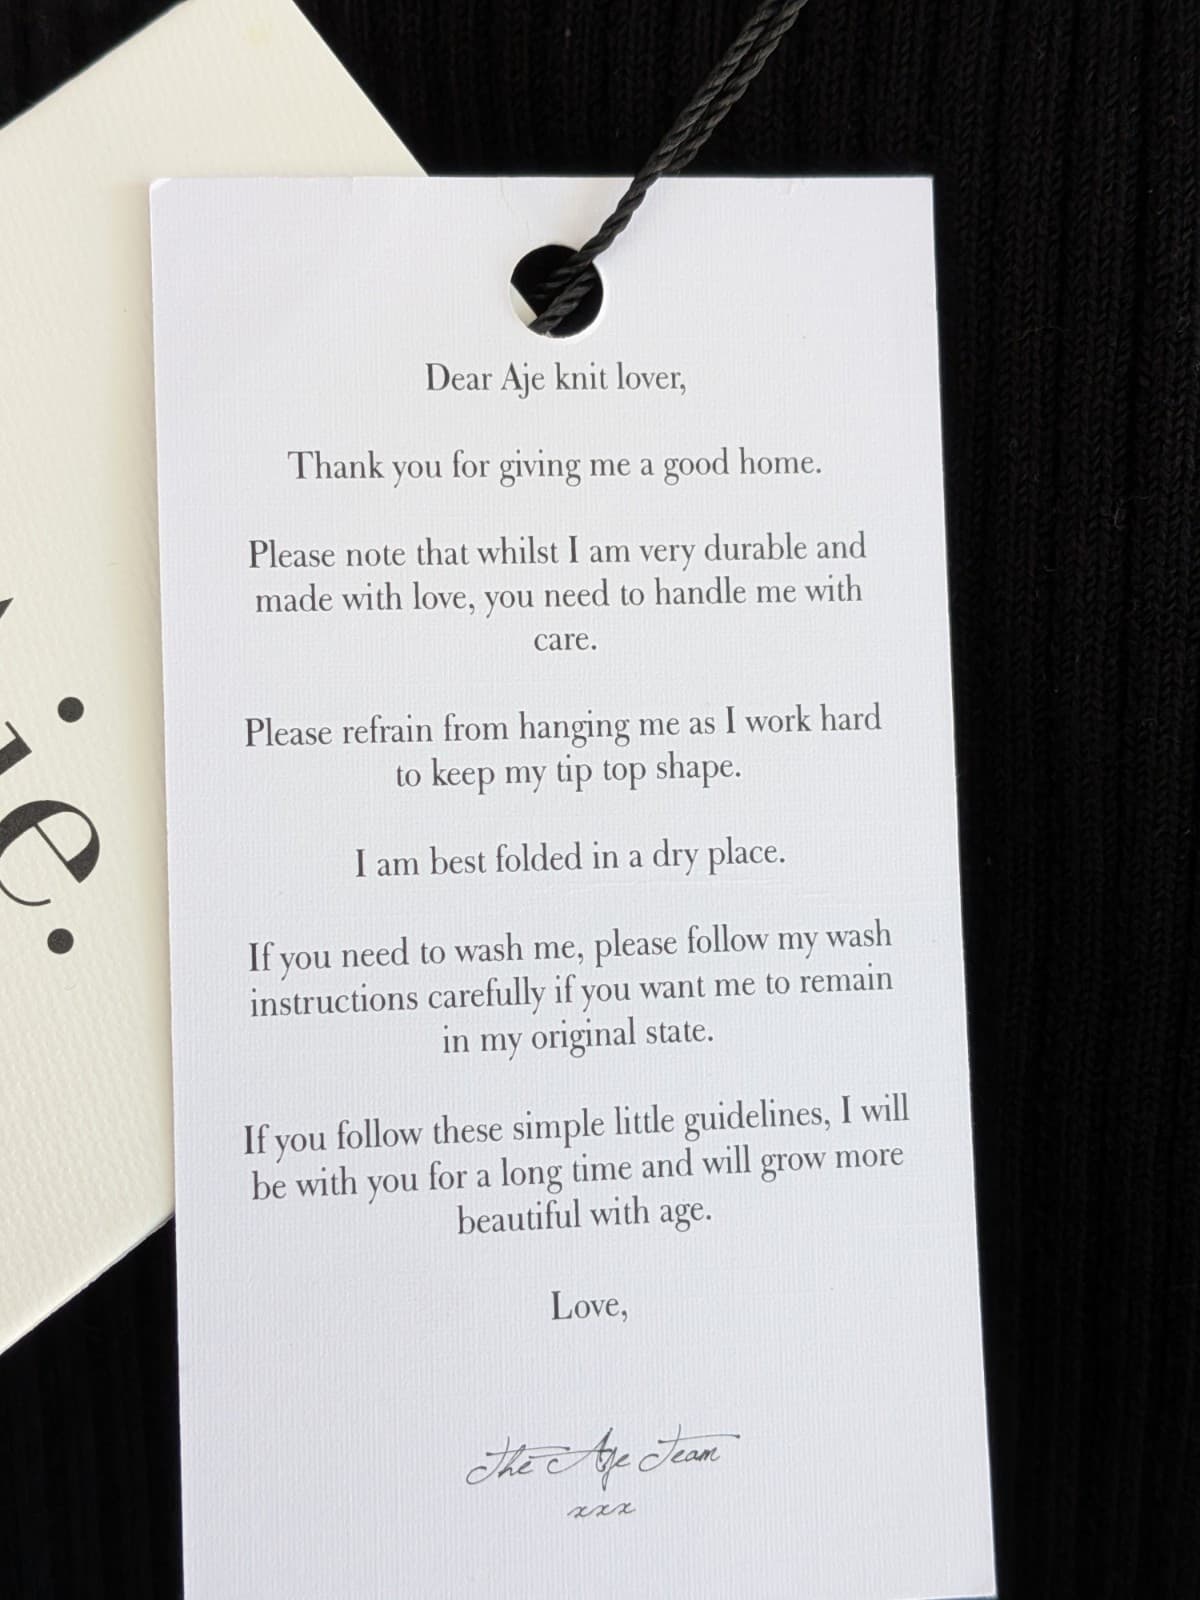 Dear Aje knit lover,
Thank you for giving me a good home.
Please note that whilst I am very durable and
made with love, you need to handle me with
care.
Please refrain from hanging me as I work hard
to keep my tip top shape.
I am best folded in a dry place.
If you need to wash me, please follow my wash
instructions carefully if you want me to remain
in my original state.
If you follow these simple little guidelines, I will
be with you for a long time and will grow more
beautiful with age.
Love,
The Aje Team
xxx